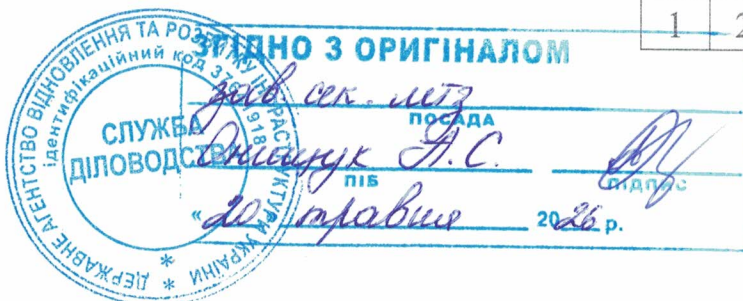 1 2
ЗГІДНО З ОРИГІНАЛОМ
зав. сек. мтз
ПОСАДА
Онищук А.С.
ПІБ
ПІДПИС
«20 травня 2026 р.
ДЕРЖАВНЕ АГЕНТСТВО ВІДНОВЛЕННЯ ТА РОЗВИТКУ ІНФРАСТРУКТУРИ УКРАЇНИ
ідентифікаційний код 37
918
СЛУЖБА
ДІЛОВОДСТВА